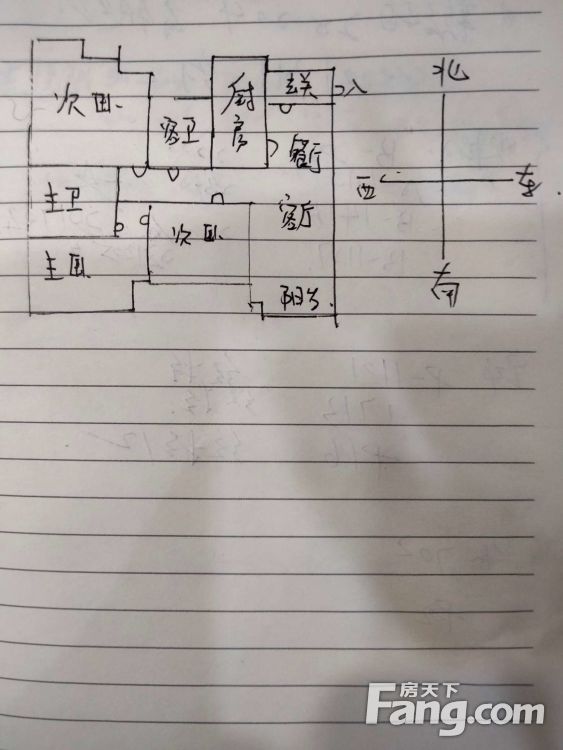 北
次卧
客卫
厨房
玄关
入
餐厅
主卫
西
东
客厅
次卧
主卧
阳台
南
房天下
Fang.com